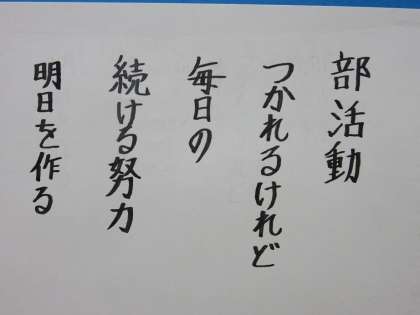 部活動
つかれるけれど
毎日の
続ける努力
明日を作る